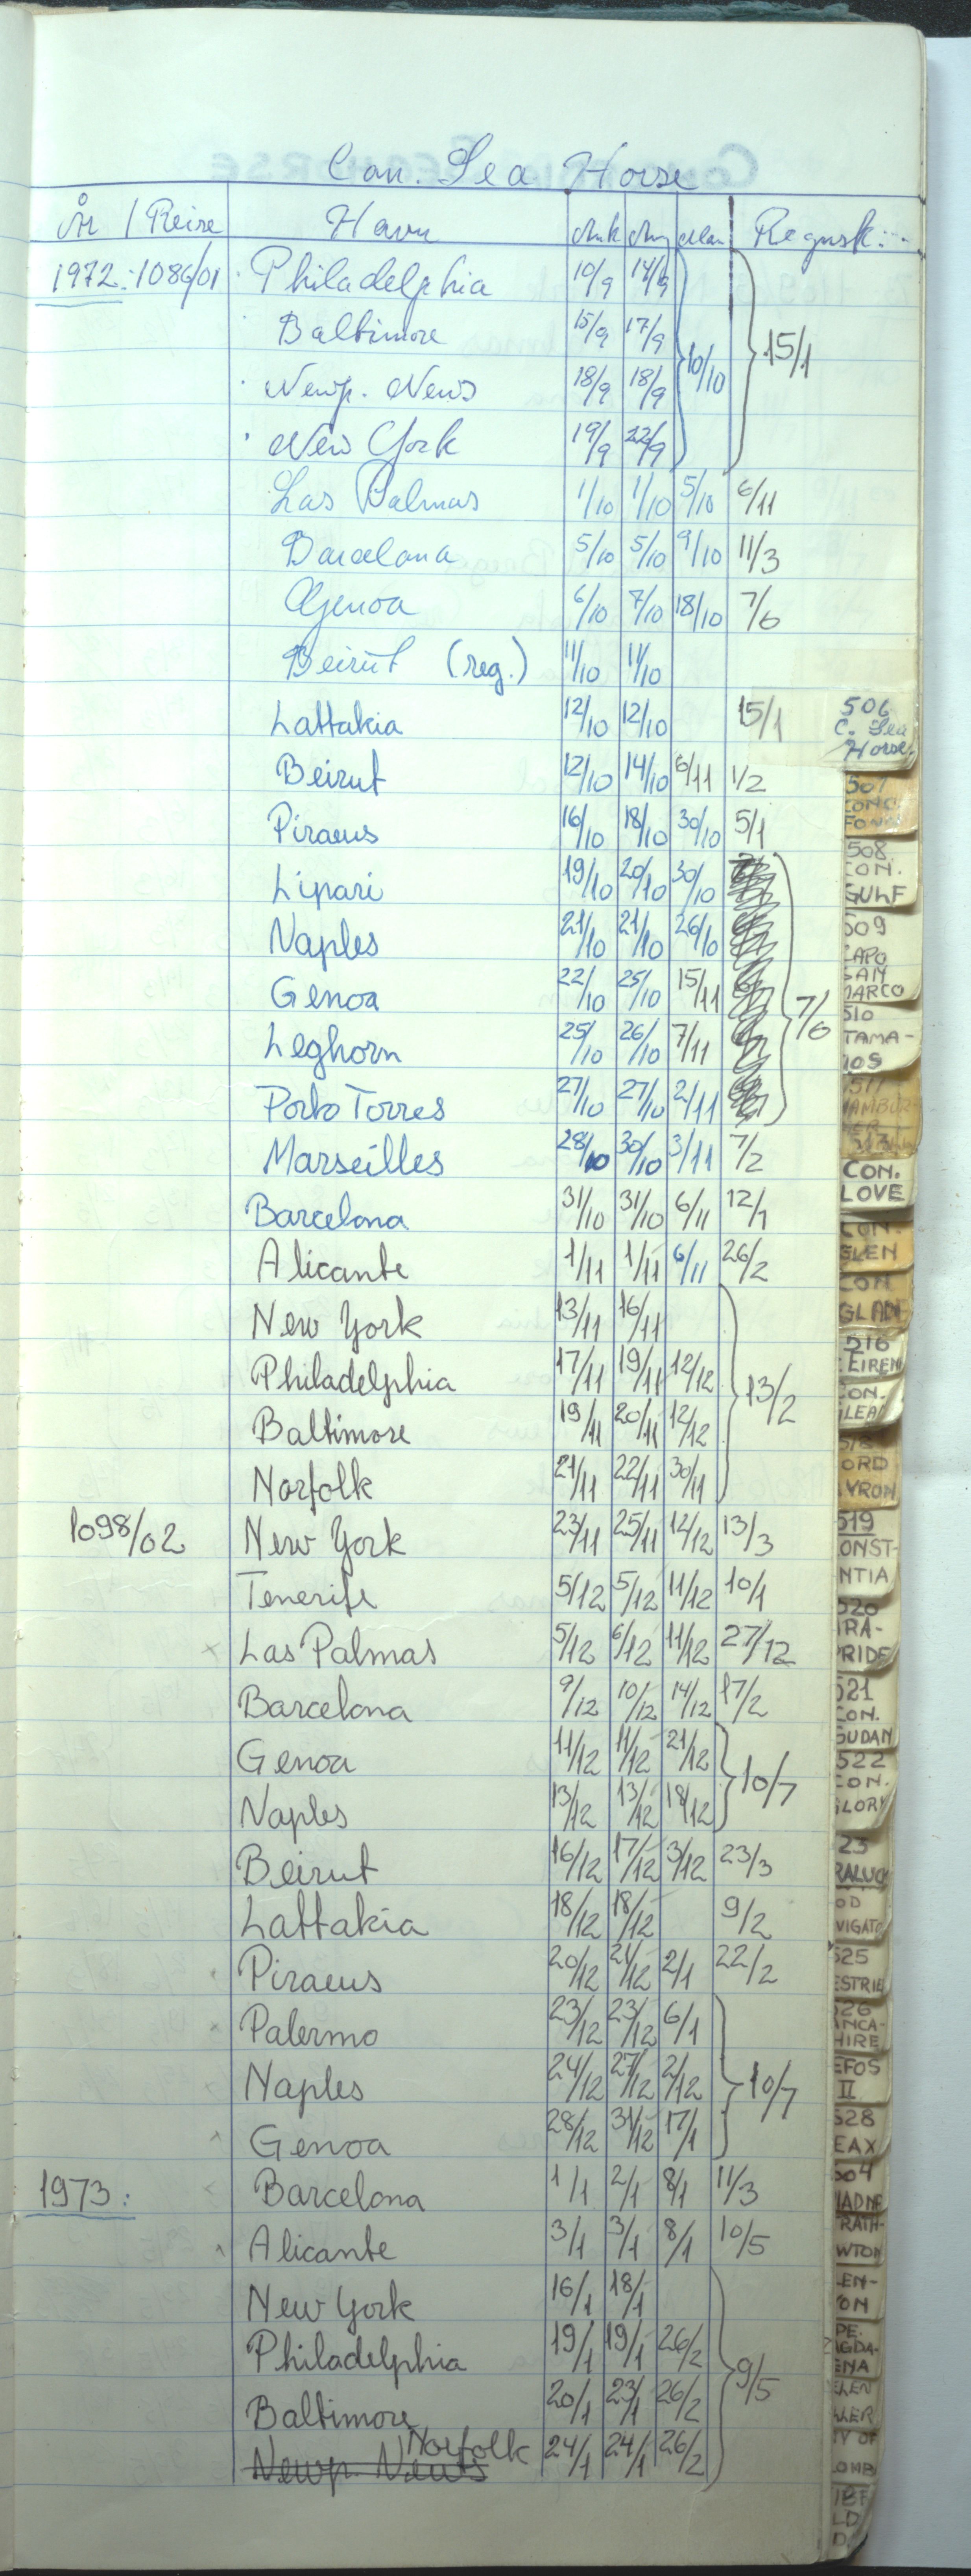 Con. Sea Horse
År / Reise Havn Ank Avg Regnsk:
1972: 1086/01 Philadelphia 10/9 14/9
Baltimore 15/9 17/9 10/10 15/1
Newp. News 18/9 18/9
New York 19/9 22/9
Las Palmas 1/10 1/10 5/10 6/11
Barcelona 5/10 5/10 9/10 11/3
Genoa 6/10 7/10 18/10 7/6
Beirut (reg.) 11/10 11/10
Lattakia 12/10 12/10 15/1
Beirut 12/10 14/10 6/11 1/2
Piraeus 16/10 18/10 30/10 5/1
Lipari 19/10 20/10 30/10
Naples 21/10 21/10 26/10
Genoa 22/10 25/10 15/11 7/6
Leghorn 25/10 26/10 7/11
Porto Torres 27/10 27/10 2/11
Marseilles 28/10 30/10 3/11 7/2
Barcelona 31/10 31/10 6/11 12/1
Alicante 1/11 1/11 6/11 26/2
New York 13/11 16/11
Philadelphia 17/11 19/11 12/12 13/2
Baltimore 19/11 20/11 12/12
Norfolk 21/11 22/11 30/11
1098/02 New York 23/11 25/11 12/12 13/3
Tenerife 5/12 5/12 11/12 10/1
Las Palmas 5/12 6/12 11/12 27/12
Barcelona 9/12 10/12 14/12 17/2
Genoa 11/12 11/12 21/12 10/7
Naples 13/12 13/12 18/12
Beirut 16/12 17/12 3/12 23/3
Lattakia 18/12 18/12 9/2
Piraeus 20/12 21/12 2/1 22/2
Palermo 23/12 23/12 6/1
Naples 24/12 27/12 2/12 10/7
Genoa 28/12 31/12 17/1
1973: Barcelona 1/1 2/1 8/1 11/3
Alicante 3/1 3/1 8/1 10/5
New York 16/1 18/1
Philadelphia 19/1 19/1 26/2 9/5
Baltimore 20/1 23/1 26/2
Newp. News Norfolk 24/1 24/1 26/2
506
C. Sea
Horse.
507
508
CON.
GULF
509
CAPO
SAN
MARCO
510
TAMA-
CON.
LOVE
CON.
GLEN
CON
GLAD
516
EIREN
CON.
519
ONST-
NTIA
520
IRA-
PRIDE
521
CON.
SUDAN
522
CON.
GLORY
23
RALUCK
OD
VIGATO
525
ESTRIE
526
ANCA-
HIRE
EFOS
II
528
EAX
504
RATH-
WTON
LEN-
ON
PE.
AGDA-
ENA